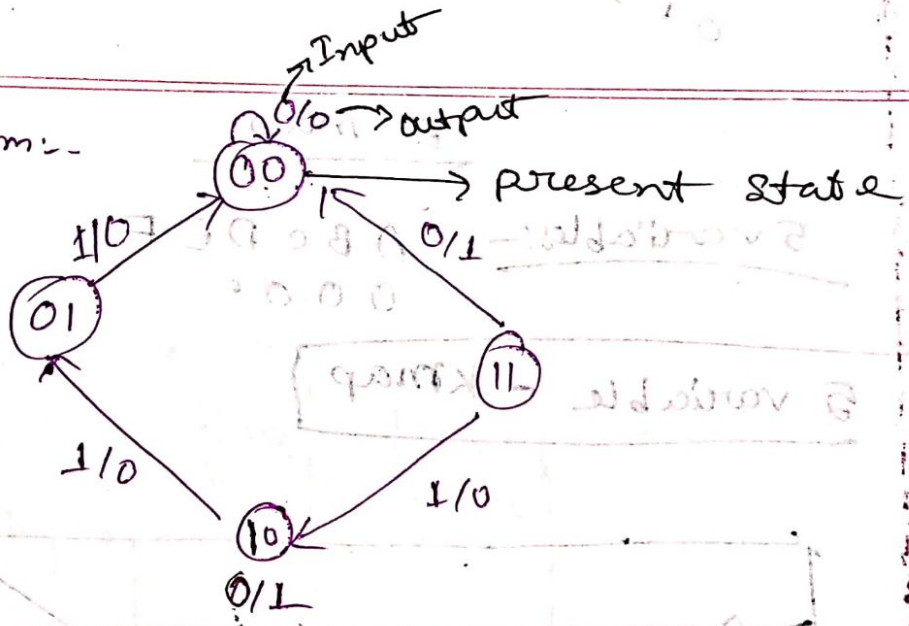 Input
0/0 → output
m:-
00 → present state
1/0
0/1
01
11
1/0
1/0
10
0/1